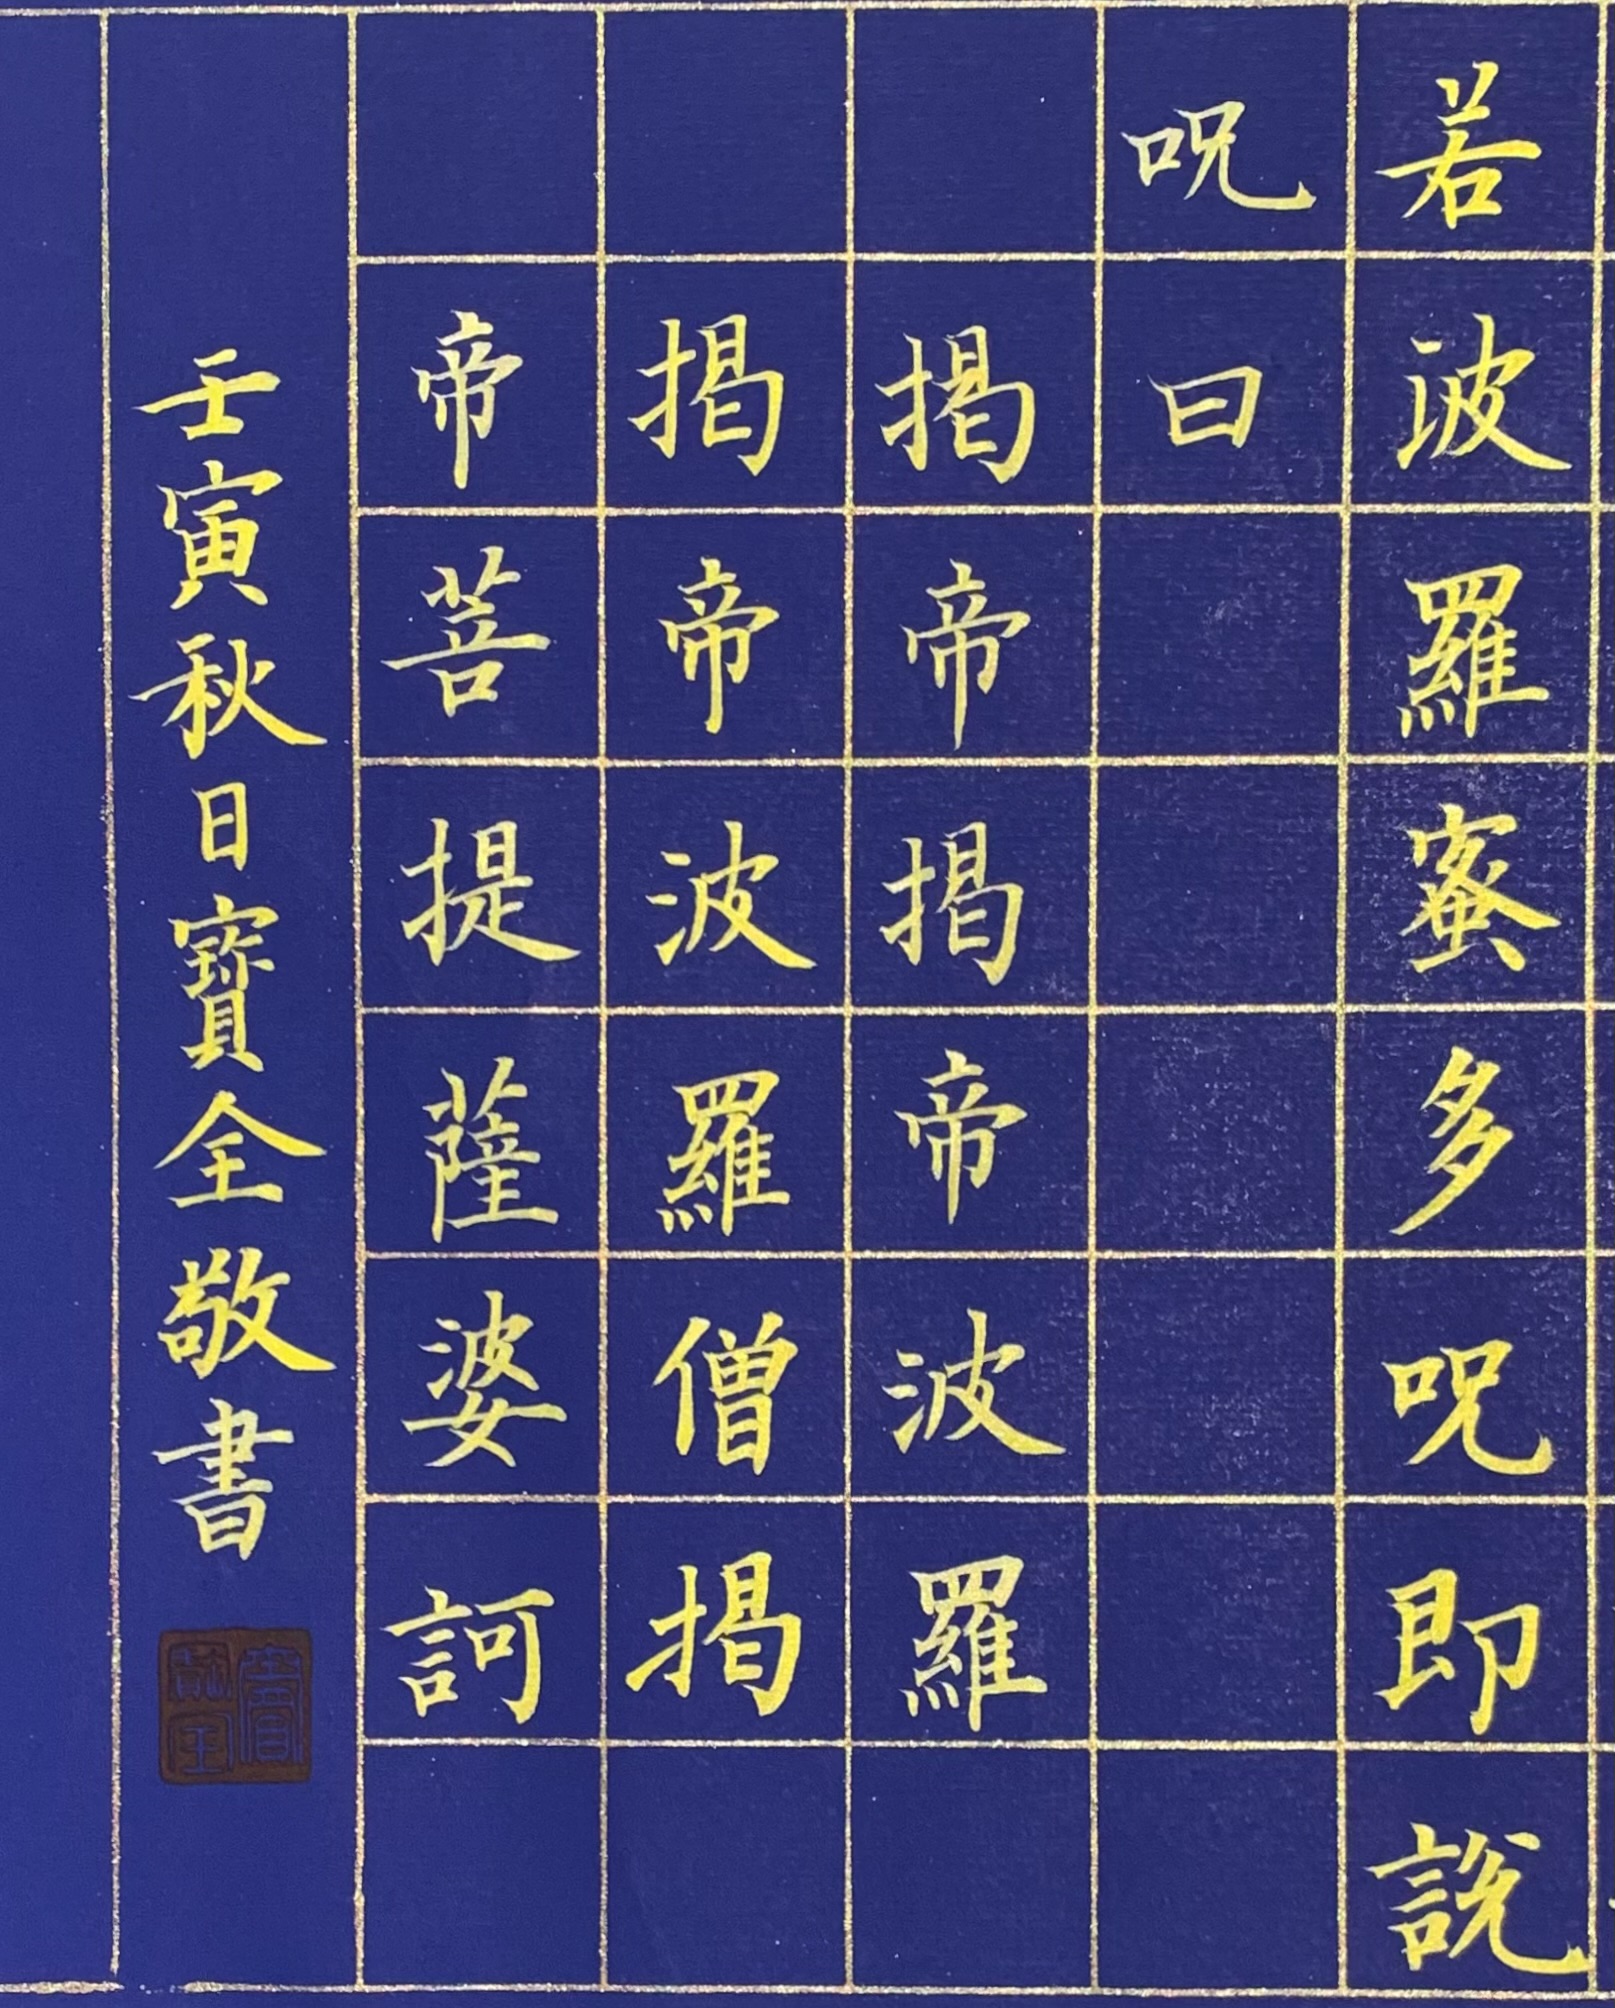 若波羅蜜多呪即說
呪曰
揭帝揭帝波羅
揭帝波羅僧揭
帝菩提薩婆訶
壬寅秋日寶全敬書